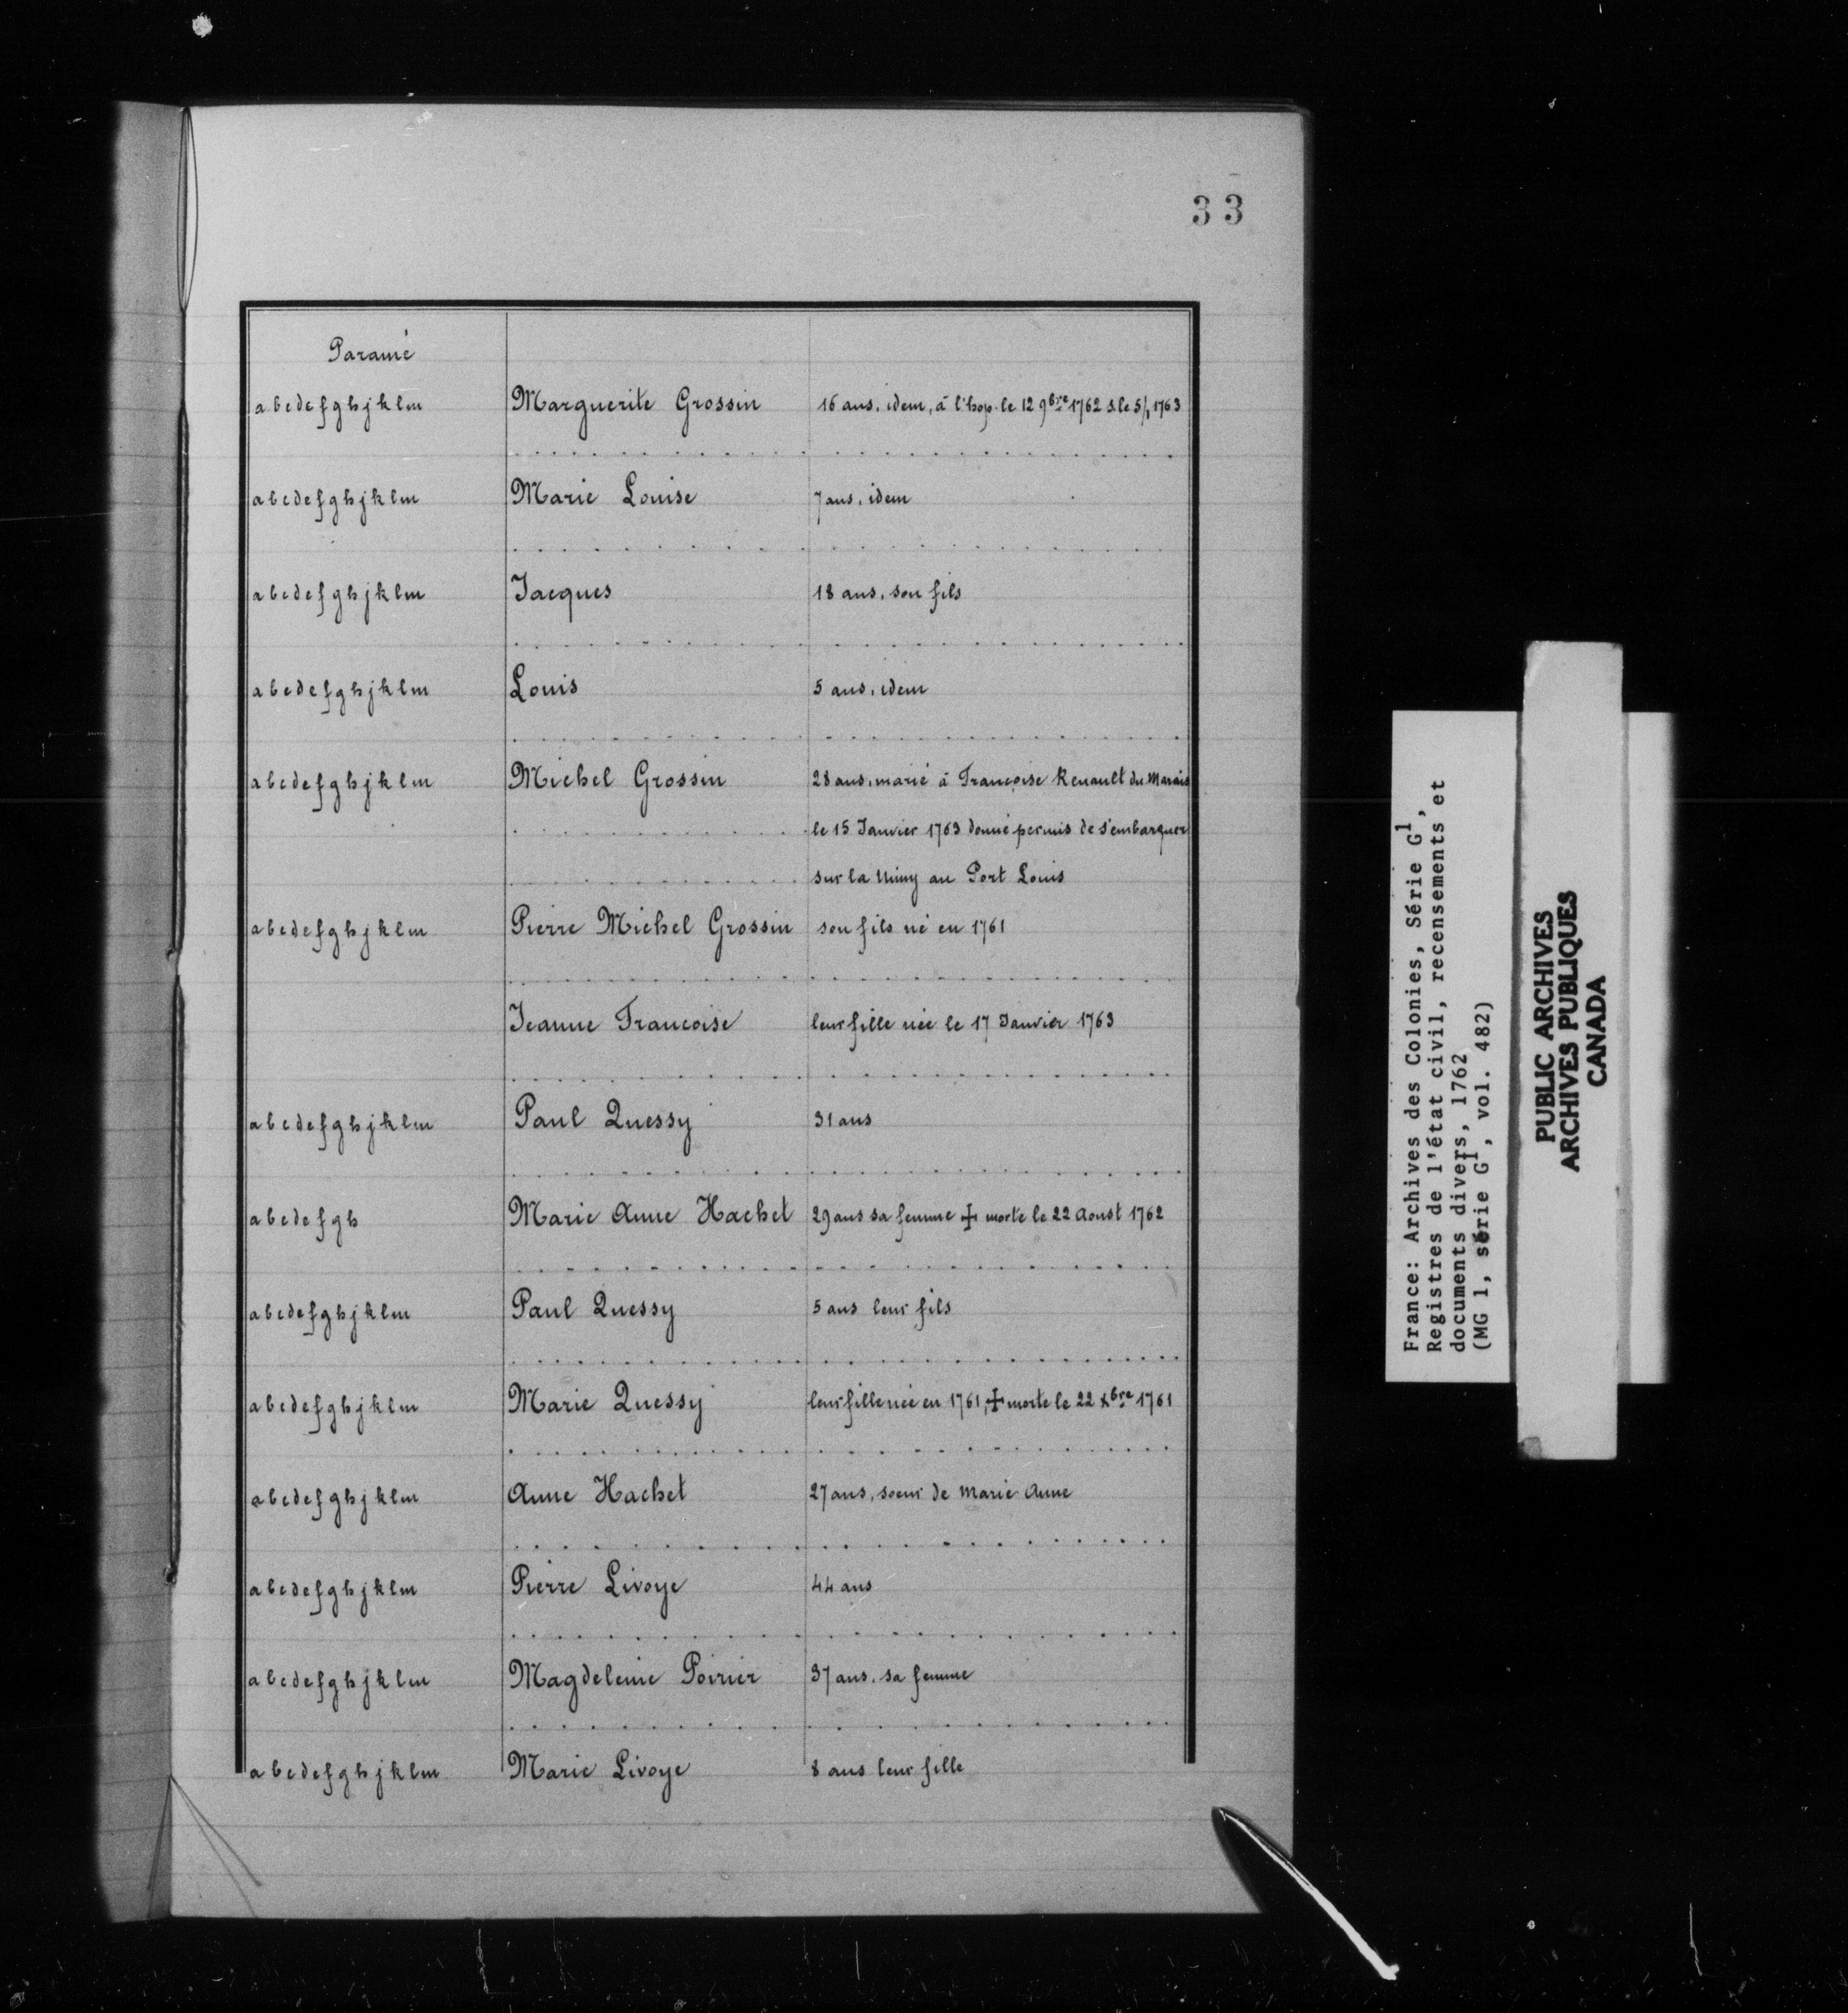 33
Paramé
abcdefghjklm Marguerite Grossin 16 ans, idem, à l'hop. le 12 9bre 1762 s. le 5/1 1763
abcdefghjklm Marie Louise 7 ans, idem
abcdefghjklm Jacques 18 ans, son fils
abcdefghjklm Louis 5 ans, idem
abcdefghjklm Michel Grossin 28 ans, marié à Françoise Renault du Marais
le 15 Janvier 1763 donné permis de s'embarquer
sur la au Port Louis
abcdefghjklm Pierre Michel Grossin son fils né en 1761
Jeanne Francoise leur fille née le 17 Janvier 1763
abcdefghjklm Paul Quessy 31 ans
abcdefgh Marie Anne Hachet 29 ans sa femme ✝ morte le 22 Aoust 1762
abcdefghjklm Paul Quessy 5 ans leur fils
abcdefghjklm Marie Quessy leur fille née en 1761, ✝ morte le 22 xbre 1761
abcdefghjklm Anne Hachet 27 ans, soeur de Marie Anne
abcdefghjklm Pierre Livoye 44 ans
abcdefghjklm Magdeleine Poirier 37 ans, sa femme
abcdefghjklm Marie Livoye 8 ans leur fille
France: Archives des Colonies, Série G1,
Registres de l'état civil, recensements et
documents divers, 1762
(MG 1, série G1, vol. 482)
PUBLIC ARCHIVES
ARCHIVES PUBLIQUES
CANADA